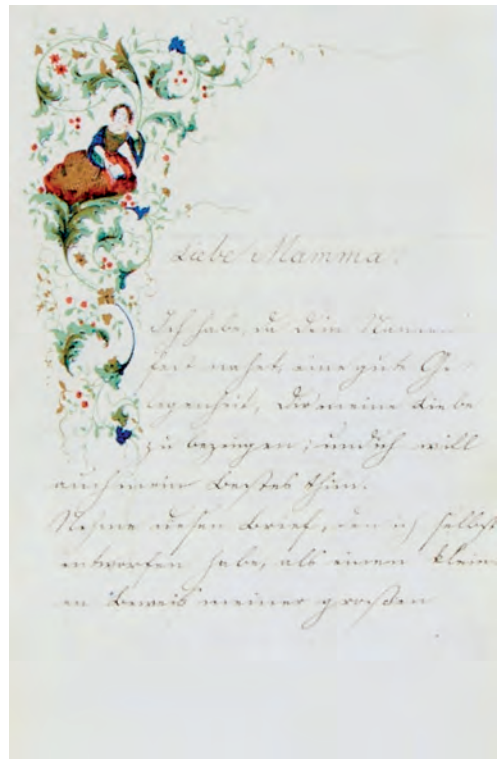 Liebe Mamma!
Ich habe, da Dein Namens-
fest nahet, eine gute Ge-
legenheit, Dir meine Liebe
zu bezeugen; und ich will
auch mein Bestes thun.
Nehme diesen Brief, den ich selbst
entworfen habe, als einen klein-
en Beweis meiner großen